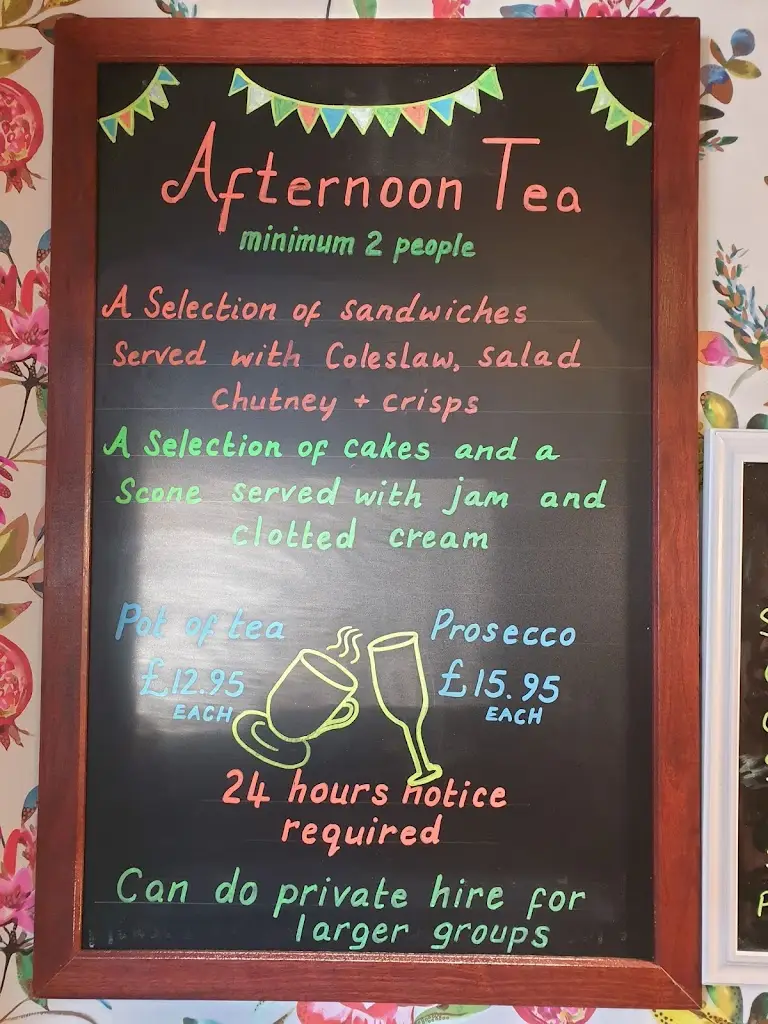 Afternoon Tea
minimum 2 people
A Selection of sandwiches
Served with Coleslaw, salad
Chutney + crisps
A Selection of cakes and a
Scone served with jam and
clotted cream
Pot of tea
£12.95
EACH
Prosecco
£15.95
EACH
24 hours notice
required
Can do private hire for
larger groups